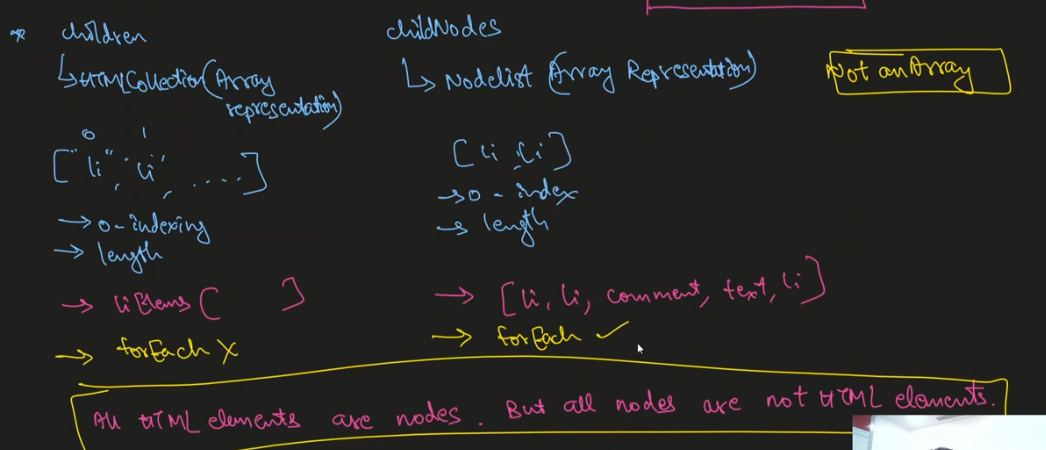 * children
↳ HTMLCollection (Array
representation)
0 1
["li", 'li', ....]
→ 0-indexing
→ length
→ liElems [ ]
→ forEach X
childNodes
↳ Nodelist (Array Representation)
[li, li]
→ 0-index
→ length
→ [li, li, comment, text, li]
→ forEach ✓
Not an Array
All HTML elements are nodes. But all nodes are not HTML elements.